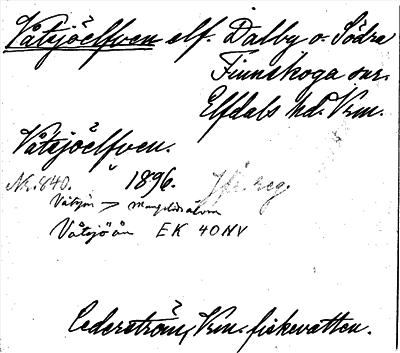 Våtsjöelfven elf. Dalby o. Södra
Finnskoga snr.
Elfdals hd. Vrm.
Våtsjöelfven.
Nr. 840. 1896. Jfr. reg.
Våtsjön > Mangslidsälven
Våtsjöån EK 40NV
Cederström, Vrm. fiskevatten.